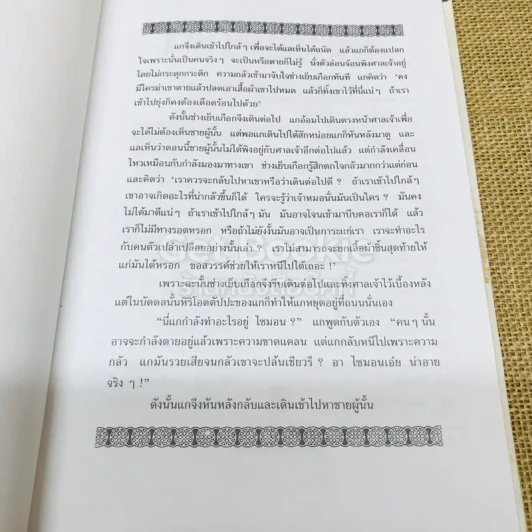 แกจึงเดินเข้าไปใกล้ๆ เพื่อจะได้แลเห็นได้ถนัด แล้วแกก็ต้องแปลก
ใจเพราะนั่นเป็นคนจริงๆ จะเป็นหรือตายก็ไม่รู้ นั่งตัวอ่อนจ้อนพิงศาลเจ้าอยู่
โดยไม่กระดุกกระดิก ความกลัวเข้ามาจับใจช่างเย็บเกือกทันที แกคิดว่า ‘คง
มีใครฆ่าเขาตายแล้วปลดเอาเสื้อผ้าเขาไปหมด แล้วก็ทิ้งเขาไว้ที่นี่แน่ๆ ถ้าเรา
เข้าไปยุ่งก็คงต้องเดือดร้อนไปด้วย’
ดังนั้นช่างเย็บเกือกจึงเดินต่อไป แกอ้อมไปเดินตรงหน้าศาลเจ้าเพื่อ
จะได้ไม่ต้องเห็นชายผู้นั้น แต่พอแกเดินไปได้สักหน่อยแกก็หันหลังมาดู และ
แลเห็นว่าตอนนี้ชายผู้นั้นไม่ได้พิงอยู่กับศาลเจ้าอีกต่อไปแล้ว แต่กำลังเคลื่อน
ไหวเหมือนกับกำลังมองมาทางเขา ช่างเย็บเกือกรู้สึกตกใจกลัวมากกว่าแต่ก่อน
และคิดว่า ‘เราควรจะกลับไปหาเขาหรือว่าเดินต่อไปดี ? ถ้าเราเข้าไปใกล้ๆ
เขาอาจเกิดอะไรที่น่ากลัวขึ้นก็ได้ ใครจะรู้ว่าเจ้าหมอนั่นมันเป็นใคร ? มันคง
ไม่ได้มาดีแน่ๆ ถ้าเราเข้าไปใกล้ๆ มัน มันอาจโจนเข้ามาบีบคอเราก็ได้ แล้ว
เราก็ไม่มีทางรอดหรอก หรือถ้าไม่ยังงั้นมันอาจเป็นภาระแก่เรา เราจะทำอะไร
กับคนตัวเปล่าเปลือยอย่างนั้นเล่า ? เราไม่สามารถจะยกเสื้อผ้าชิ้นสุดท้ายให้
แก่มันได้หรอก ขอสวรรค์ช่วยให้เราหนีไปได้เถอะ !’
เพราะฉะนั้นช่างเย็บเกือกจึงรีบเดินต่อไปและทิ้งศาลเจ้าไว้เบื้องหลัง
แต่ในบัดดลนั้นหิริโอตตัปปะของแกก็ทำให้แกหยุดอยู่ที่ถนนนั่นเอง
“นี่แกกำลังทำอะไรอยู่ ไซมอน ?” แกพูดกับตัวเอง “คนๆ นั้น
อาจจะกำลังตายอยู่แล้วเพราะความขาดแคลน แต่แกกลับหนีไปเพราะความ
กลัว แกมันรวยเสียจนกลัวเขาจะปล้นเชียวรึ ? อา ไซมอนเอ๋ย น่าอาย
จริง ๆ !”
ดังนั้นแกจึงหันหลังกลับและเดินเข้าไปหาชายผู้นั้น